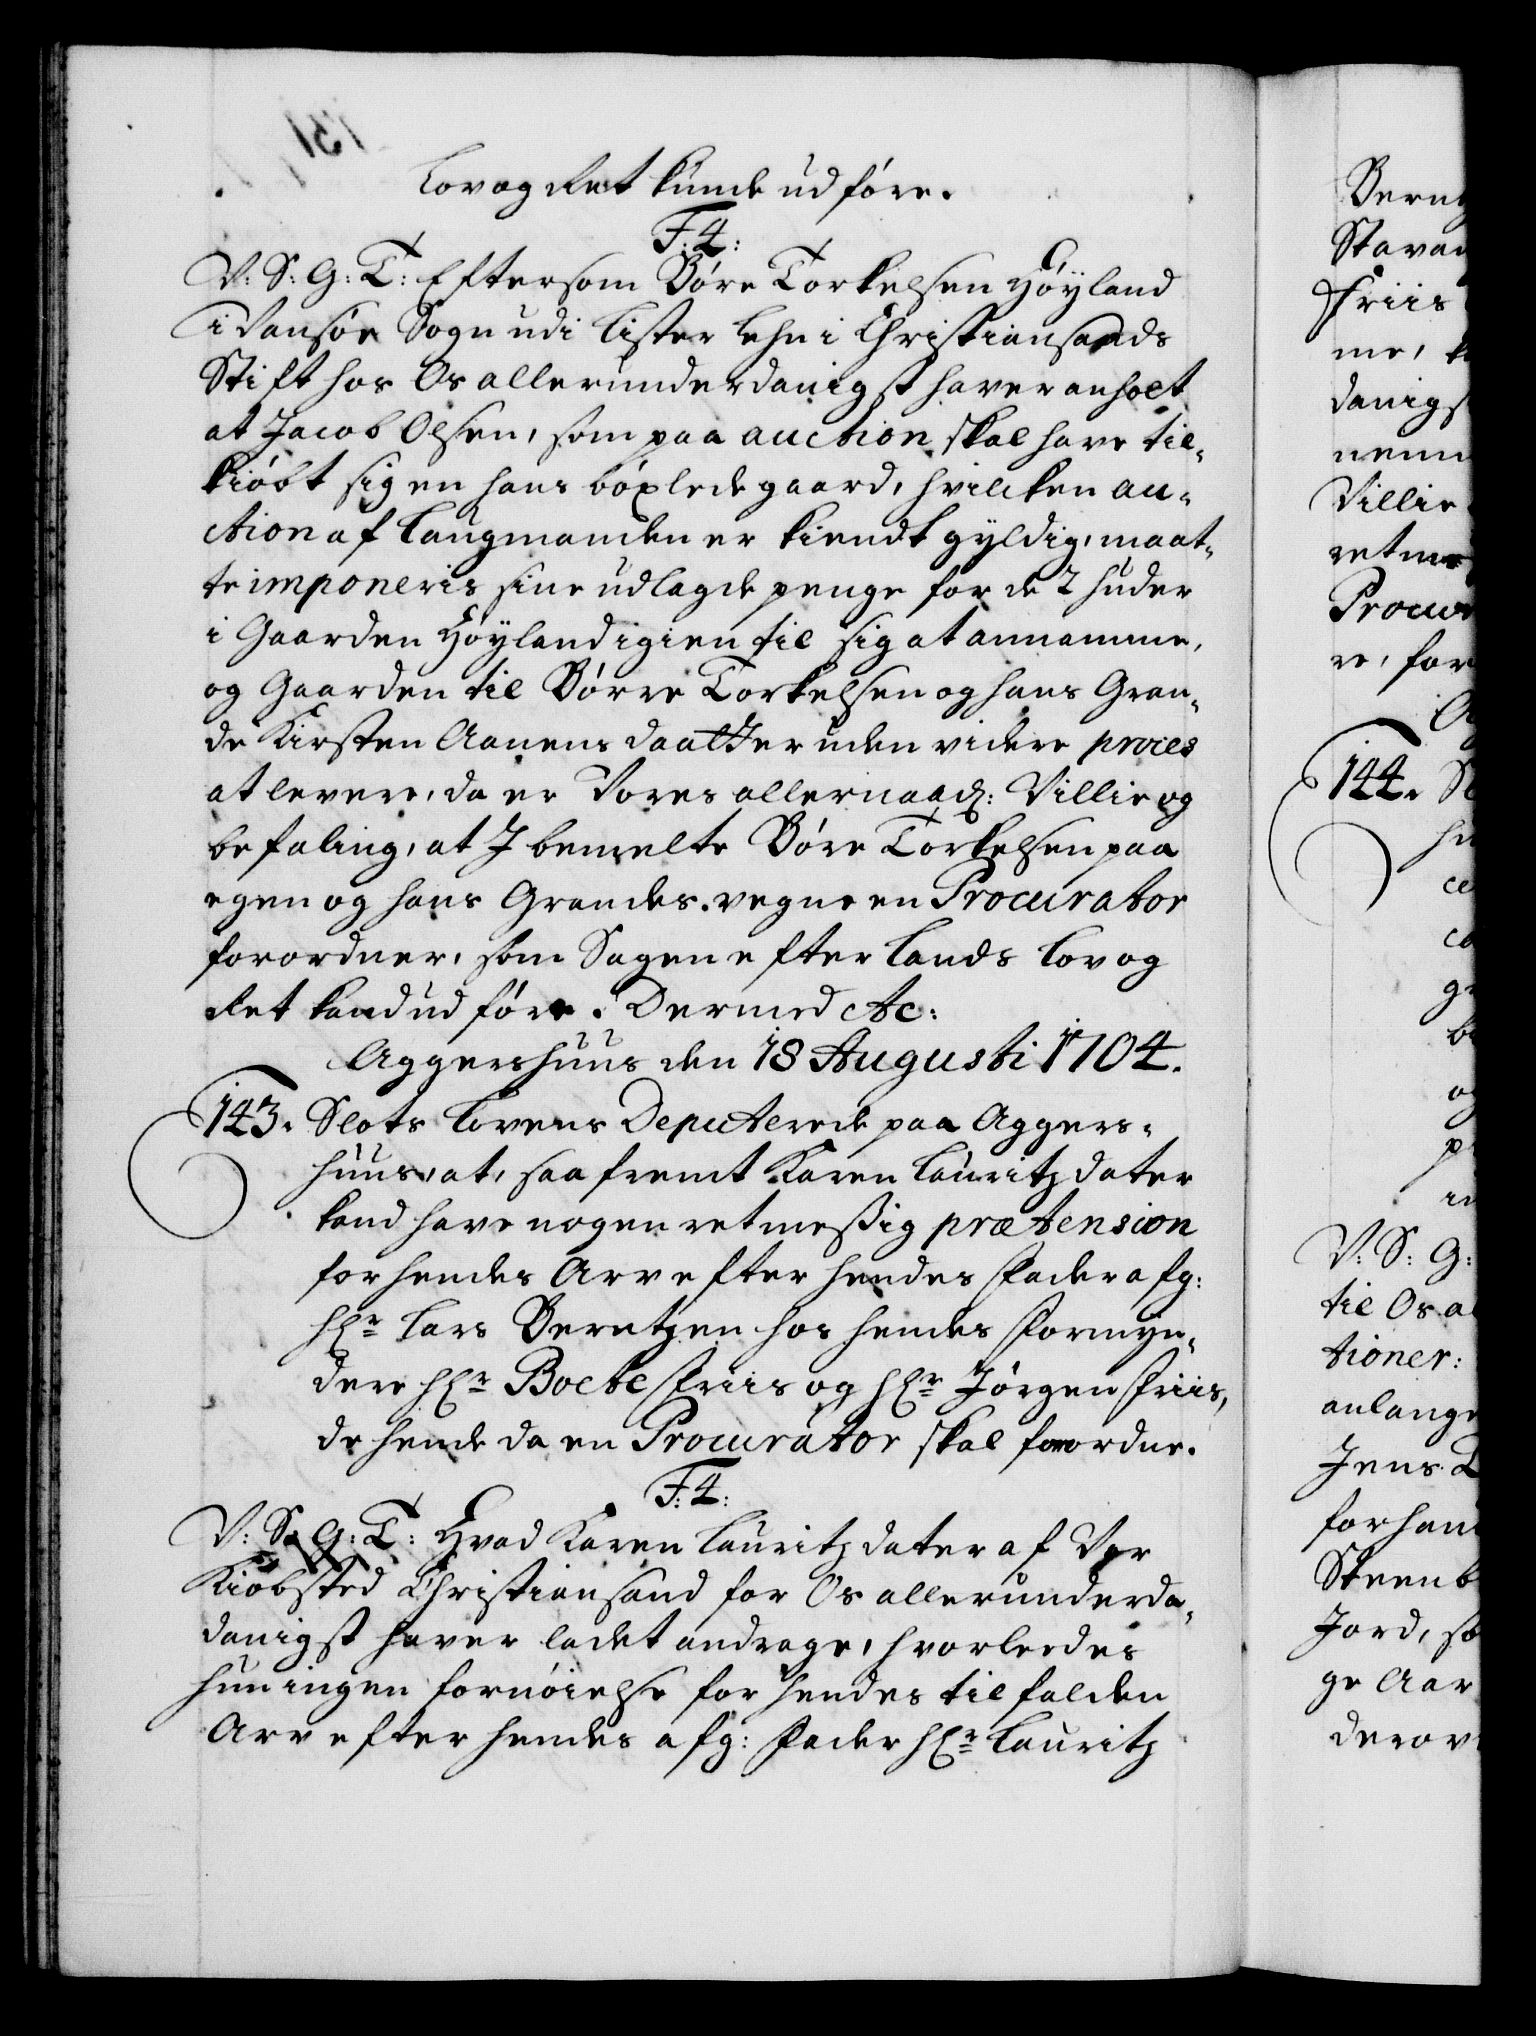 Lov og Ret kunde udføre.
F: 4:
V: S: G: T: Eftersom Børe Torkelsen Høyland
i Vansøe Sogn udi Lister Lehn i Christiansands
Stift hos Os allerunderdanigst haver anholt
at Jacob Olsen, som paa auction skal have til-
kiøbt sig en hans bøxlede gaard, hvilcken au-
ction af Laugmanden er kiendt gyldig, maat-
te imponeris sine udlagde penge for de 2 huder
i Gaarden Høyland igien til sig at annamme,
og Gaarden til Børre Torkelsen og hans Gran-
de Kirsten Aanens daatter uden videre proces
at levere, da er Vores allernaad: Villie og
befaling, at I bemelte Børe Torkelsen paa
egen og hans Grandes vegne en Procurator
forordner, som Sagen efter Lands Lov og
Ret kand udføre. Dermed &c:
Aggershuus den 18 Augusti 1704.
143. Slots Lovens Deputerede paa Aggers-
huus, at, saafremt Karen Lauritzdater
kand have nogen retmeßig prætension
for hendes Arv efter hendes Fader afg:
Hr Lars Berntzen hos hendes Formyn-
dere Hr Boete Friis og Hr Jørgen Friis,
de hende da en Procurator skal forordne.
F: 4:
V: S: G: T: Hvad Karen Lauritzdater af Vor
Kiøbsted Christiansand for Os allerunderda-
danigst haver ladet andrage, hvorledes
hun ingen fornøielse for hendes tilfalden
Arv efter hendes afg: Fader Hr Lauritz
Friis
danigst
Villie
144.
V: S: G:
til Os
tioner:
anlange
Jens
Jord,
ge Aar